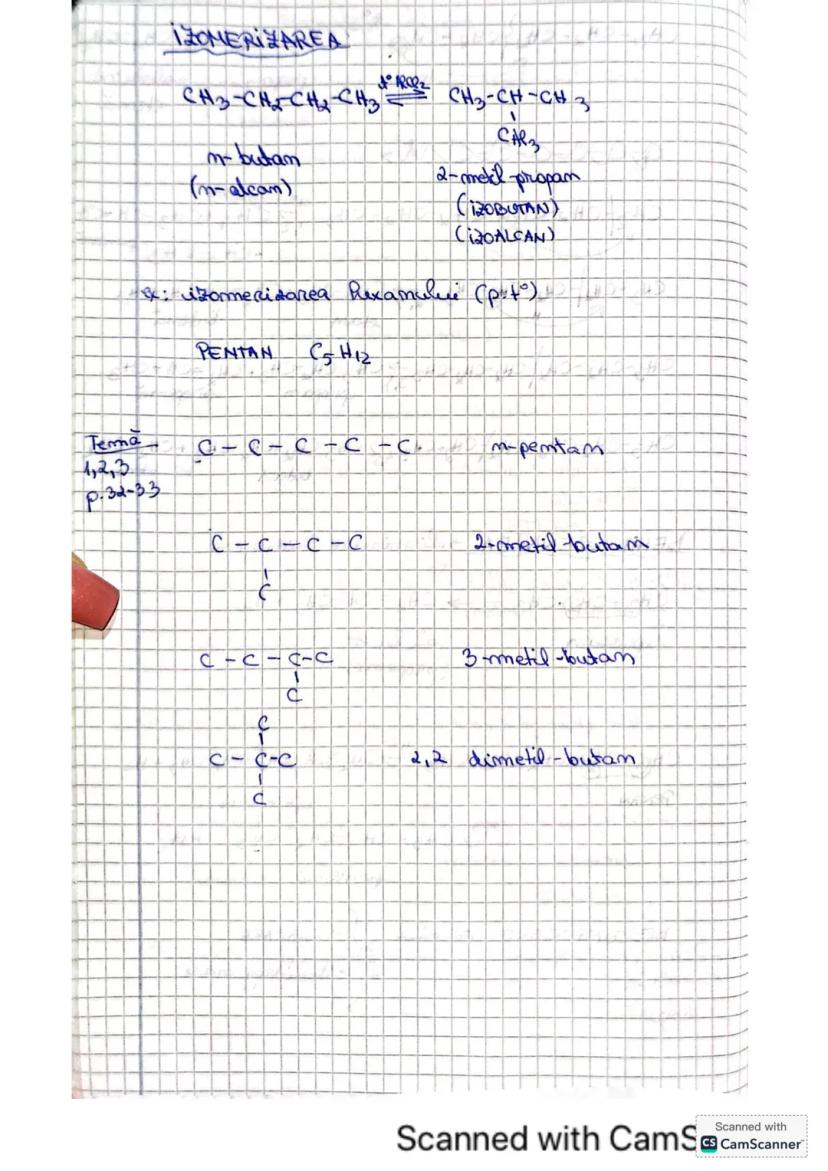 IZOMERIZAREA
CH3-CH2-CH2-CH3 ⇌ CH3-CH-CH3
CH3
n-butan
(n-alcan)
2-metil propan
(IZOBUTAN)
(IZOALCAN)
ex: izomerizarea hexanului (p:t°)
PENTAN C5H12
Temă
1,2,3
p.32-33
C - C - C - C - C. n-pentan
C - C - C - C 2-metil-butan
C
C - C - C - C 3-metil-butan
C
C
C - C - C 2,2 dimetil-butan
C
Scanned with CamS
Scanned with
CS CamScanner